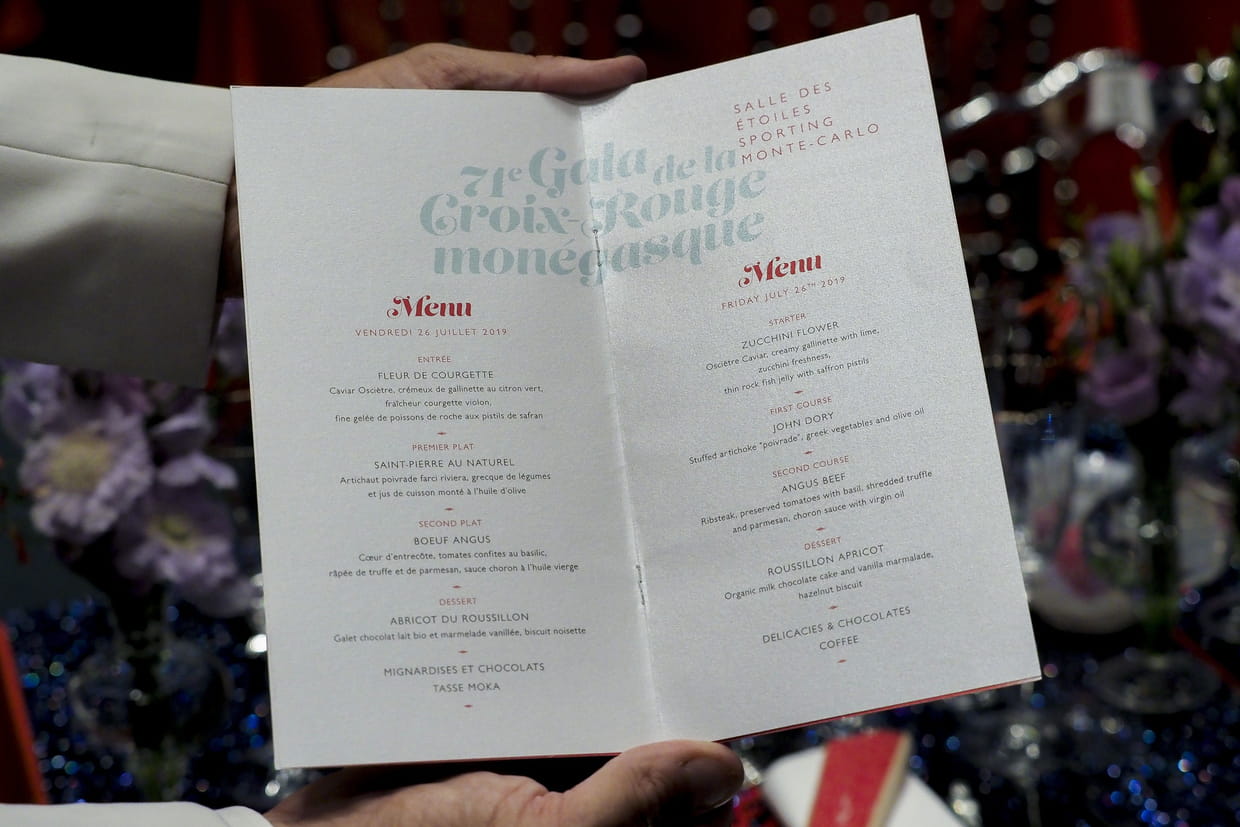 71e Gala de la
Croix-Rouge
monégasque
Menu
VENDREDI 26 JUILLET 2019
ENTRÉE
FLEUR DE COURGETTE
Caviar Osciètre, crémeux de gallinette au citron vert,
fraîcheur courgette violon,
fine gelée de poissons de roche aux pistils de safran
PREMIER PLAT
SAINT-PIERRE AU NATUREL
Artichaut poivrade farci riviera, grecque de légumes
et jus de cuisson monté à l'huile d'olive
SECOND PLAT
BOEUF ANGUS
Cœur d'entrecôte, tomates confites au basilic,
râpée de truffe et de parmesan, sauce choron à l'huile vierge
DESSERT
ABRICOT DU ROUSSILLON
Galet chocolat lait bio et marmelade vanillée, biscuit noisette
MIGNARDISES ET CHOCOLATS
TASSE MOKA
SALLE DES
ÉTOILES
SPORTING
MONTE-CARLO
Menu
FRIDAY JULY 26TH 2019
STARTER
ZUCCHINI FLOWER
Osciètre Caviar, creamy gallinette with lime,
zucchini freshness,
thin rock fish jelly with saffron pistils
FIRST COURSE
JOHN DORY
Stuffed artichoke "poivrade", greek vegetables and olive oil
SECOND COURSE
ANGUS BEEF
Ribsteak, preserved tomatoes with basil, shredded truffle
and parmesan, choron sauce with virgin oil
DESSERT
ROUSSILLON APRICOT
Organic milk chocolate cake and vanilla marmalade,
hazelnut biscuit
DELICACIES & CHOCOLATES
COFFEE